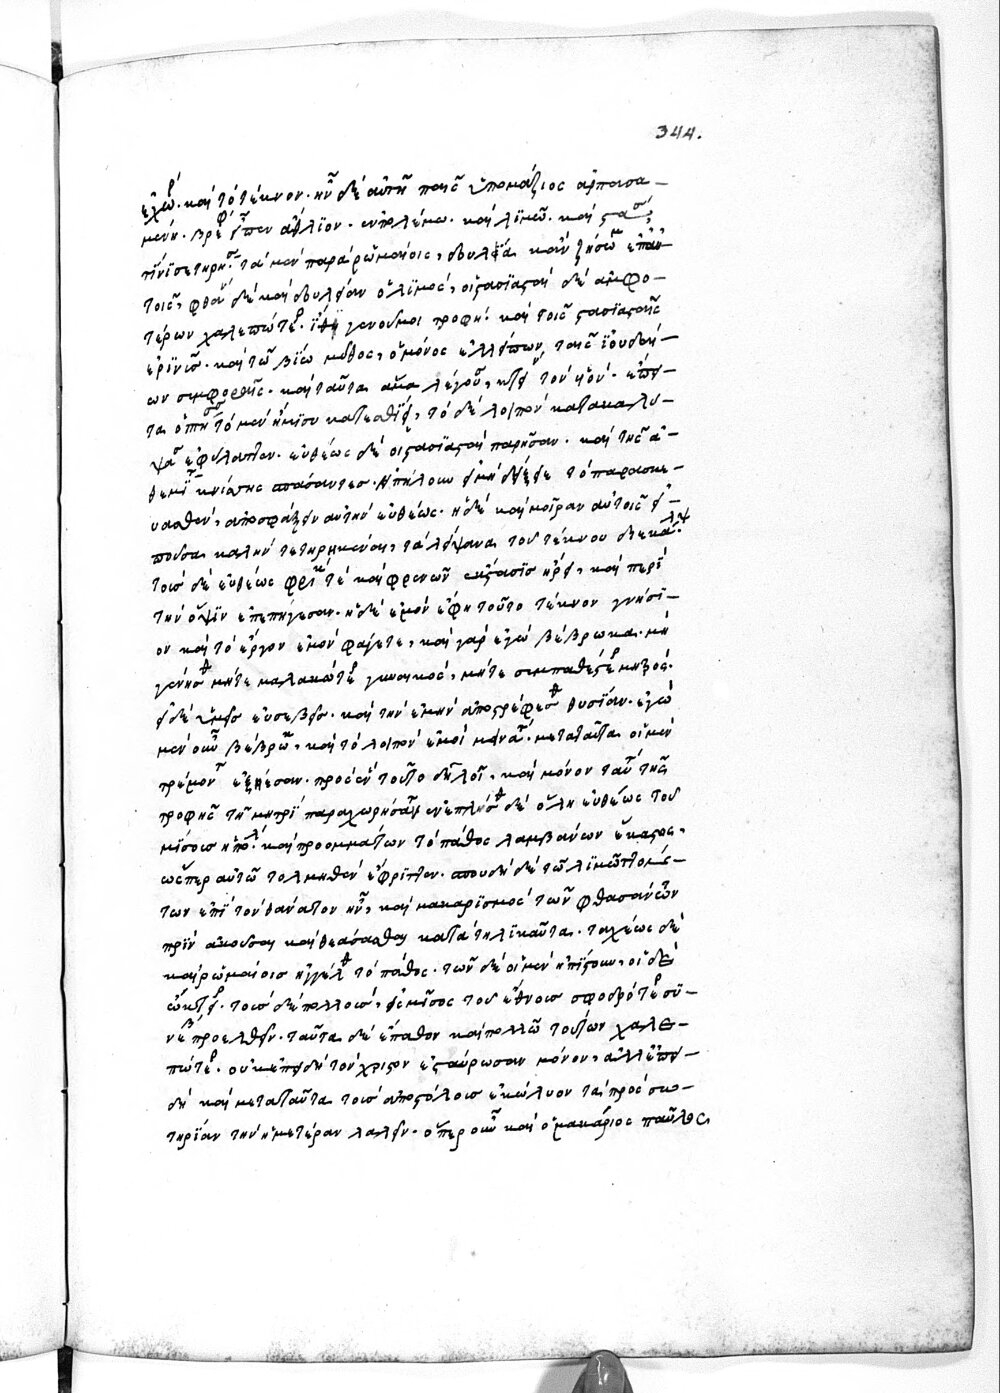 344.
ἐχώρ. καὶ τὸ τέκνον. ἦν δὲ αὐτῆ παῖς ὑπομάζιος ἁρπασα-
μένη. βρέφ εἶπεν ἄθλιον. ἐν πολέμω. καὶ λιμῶ. καὶ στασ
τίνι σε τηρη. τὰ μὲν παρὰ ῥωμαίοις, δουλεία κἂν ζήσωμ ἐπ αὐ-
τοῖς, φθαν δὲ καὶ δουλείαν ὁ λιμός, οἱ στασιασταὶ δὲ ἀμφο-
τέρων χαλεπώτερ. ἴθι γενοῦ μοι τροφή. καὶ τοῖς στασιασταῖς
ἐρινύς. καὶ τῶ βίω μῦθος, ὁ μόνος ἐλλείπων ταῖς ἰουδαί-
ων συμφοραῖς. καὶ ταῦτα ἅμα λέγουσ, κτείν τὸν υἱόν. ἔπει-
τα ὀπτησ τὸ μὲν ἥμισυ κατεσθίει, τὸ δὲ λοιπὸν κατακαλύ-
ψασ ἐφύλαττεν. εὐθέως δὲ οἱ στασιασταὶ παρῆσαν. καὶ τῆς ἀ-
θεμί κνίσης σπάσαντες. ἠπείλουν εἰ μὴ δείξειε τὸ παρασκε-
υασθέν, ἀποσφάξειν αὐτὴν εὐθέως. ἡ δὲ καὶ μοῖραν αὐτοῖς εἰ-
ποῦσα καλὴν τετηρηκέναι, τὰ λείψανα τοῦ τέκνου διεκάλυψ
τοὺς δὲ εὐθέως φρίκ τὲ καὶ φρενῶν ἔκστασις ἥρει, καὶ περὶ
τὴν ὄψιν ἐπεπήγεσαν. ἡ δὲ ἐμὸν ἔφη τοῦτο τέκνον γνήσι-
ον καὶ τὸ ἔργον ἐμὸν φάγετε, καὶ γὰρ ἐγὼ βέβρωκα. μὴ
γένησθ μήτε μαλακώτερ γυναικός, μήτε συμπαθέστερ μητρός.
εἰ δὲ ὑμεῖς εὐσεβεῖς. καὶ τὴν ἐμὴν ἀποστρέφεσθ θυσίαν. ἐγὼ
μὲν οὖν βέβρω, καὶ τὸ λοιπὸν ἐμοὶ μεινα. μετὰ ταῦτα οἱ μὲν
τρέμοντ ἐξήεσαν. πρὸς ἓν τοῦτο δειλοὶ, καὶ μόνον ταύτης
τροφῆς τῆ μητρὶ παραχωρήσαντ ἐνεπλήσθ δὲ ὅλη εὐθέως τοῦ
μίσους ἡ πόλ. καὶ πρὸ ὀμμάτων τὸ πάθος λαμβάνων ἕκαστος,
ὥσπερ αὐτῶ τολμηθὲν ἔφριττεν. σπουδὴ δὲ τῶν λιμωττόν-
των ἐπὶ τὸν θάνατον ἦν, καὶ μακαρισμὸς τῶν φθασάντων
πρὶν ἀκοῦσαι καὶ θεάσασθαι κακὰ τηλικαῦτα. ταχέως δὲ
καὶ ῥωμαίοις ἠγγέλθ τὸ πάθος. τῶν δὲ οἱ μὲν ἠπίστουν, οἱ δὲ
ὤκτειρ. τοὺς δὲ πολλοὺς, εἰς μῖσος τοῦ ἔθνους σφοδρότερ συ-
νέβ προελθεῖν. ταῦτα δὲ ἔπαθον καὶ πολλῶ τούτων χαλε-
πώτερ. οὐκ ἐπειδὴ τὸν χριστὸν ἐσταύρωσαν μόνον, ἀλλ ἐπει-
δὴ καὶ μετὰ ταῦτα τοὺς ἀποστόλους ἐκώλυον τὰ πρὸς σω-
τηρίαν τὴν ἡμετέραν λαλεῖν. ὅπερ οὖν καὶ ὁ μακάριος παῦλος